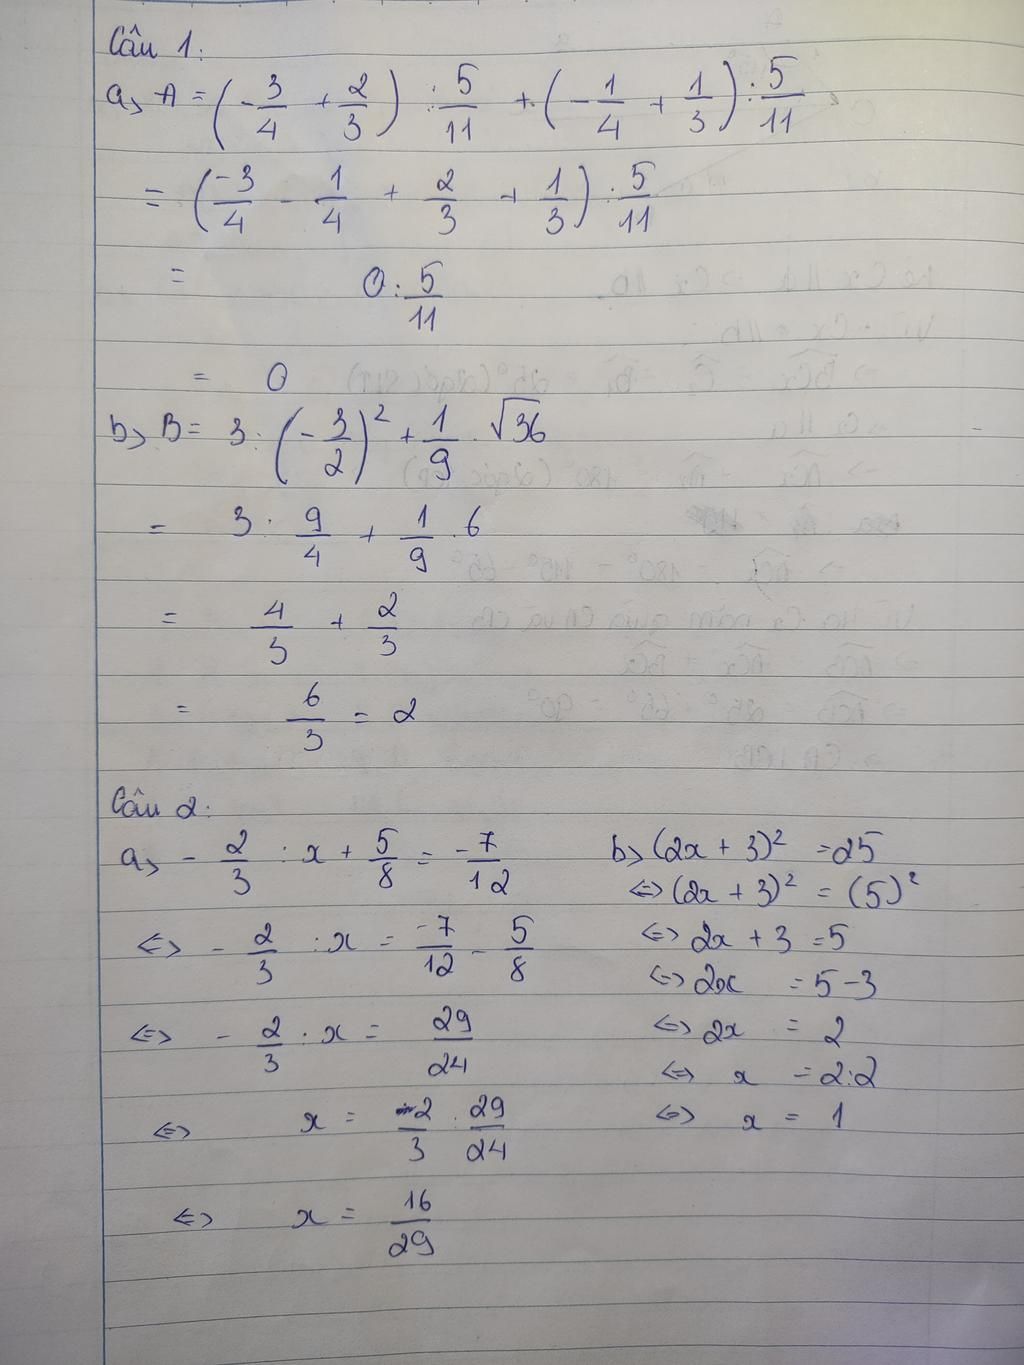 Câu 1:
a, A = (-3/4 + 2/3) : 5/11 + (-1/4 + 1/3) : 5/11
= (-3/4 - 1/4 + 2/3 + 1/3) : 5/11
= 0 : 5/11
= 0
b, B = 3 : (-3/2)² + 1/9 . √36
= 3 : 9/4 + 1/9 . 6
= 4/3 + 2/3
= 6/3 = 2
Câu 2:
a, - 2/3 : x + 5/8 = -7/12
⇔ - 2/3 : x = -7/12 - 5/8
⇔ - 2/3 : x = 29/24
⇔ x = -2/3 : 29/24
⇔ x = 16/29
b, (2x + 3)² = 25
⇔ (2x + 3)² = (5)²
⇔ 2x + 3 = 5
⇔ 2x = 5 - 3
⇔ 2x = 2
⇔ x = 2:2
⇔ x = 1